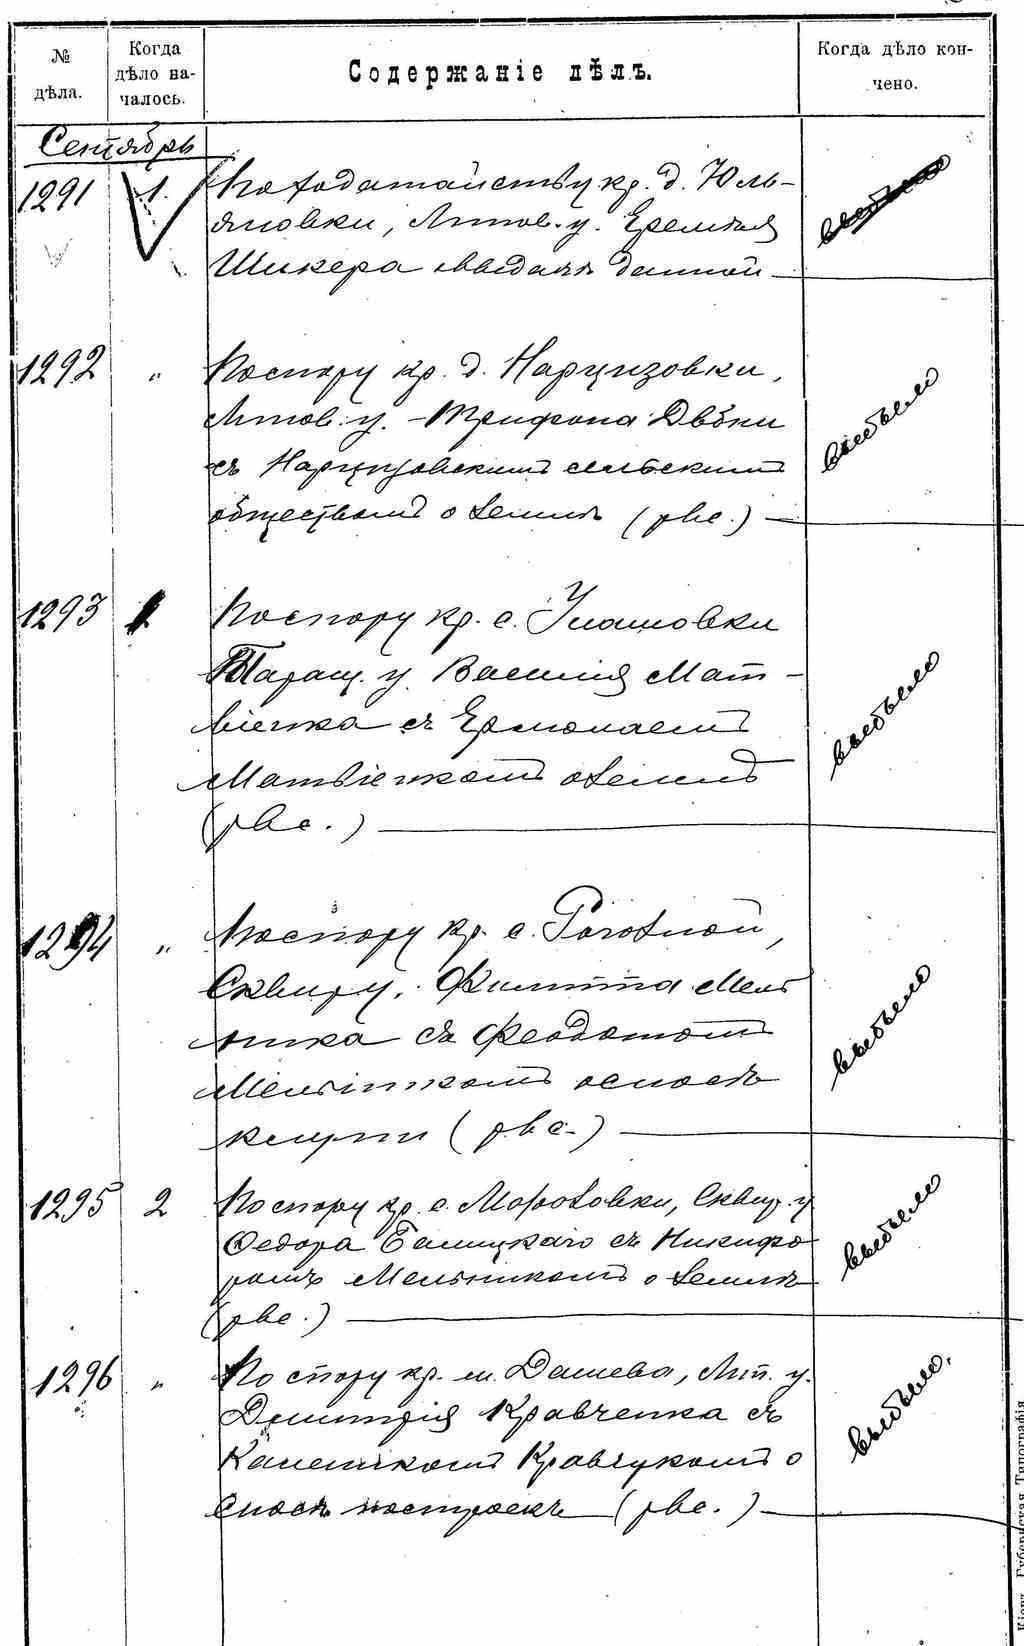 № дѣла.
Когда дѣло на-
чалось.
Содержаніе дѣлъ.
Когда дѣло кон-
чено.
Сентябрь
1291 1. По ходатайству кр. д. Юль-
яновки, Липов. у. Еремѣя
Шикера о выдачѣ данной
1292 " По спору кр. д. Нарцизовки,
Липов. у. Трифона
съ Нарцизовскимъ сельскимъ
обществомъ о землѣ (рвс.)
выбыло
1293 По спору кр. с.
Таращ. у. Василія Мат-
віенка съ Ермолаемъ
Матвіенкомъ о землѣ
(рвс.)
выбыло
1294 " По спору кр. с.
Сквир. у. Филиппа Мель
ника съ Феодотомъ
Мельникомъ о сносѣ
клуни (рвс.)
выбыло
1295 2 По спору кр. с. Морозовки, Сквир. у
Федора Галицкаго съ Никифо
ромъ Мельникомъ о землѣ
(рвс.)
выбыло
1296 " По спору кр. м. Дашева, Лип. у.
Дмитрія Кравченка съ
Кравчукомъ о
сносѣ построекъ (рвс.)
выбыло.
Кіевъ. Губернская Типографія